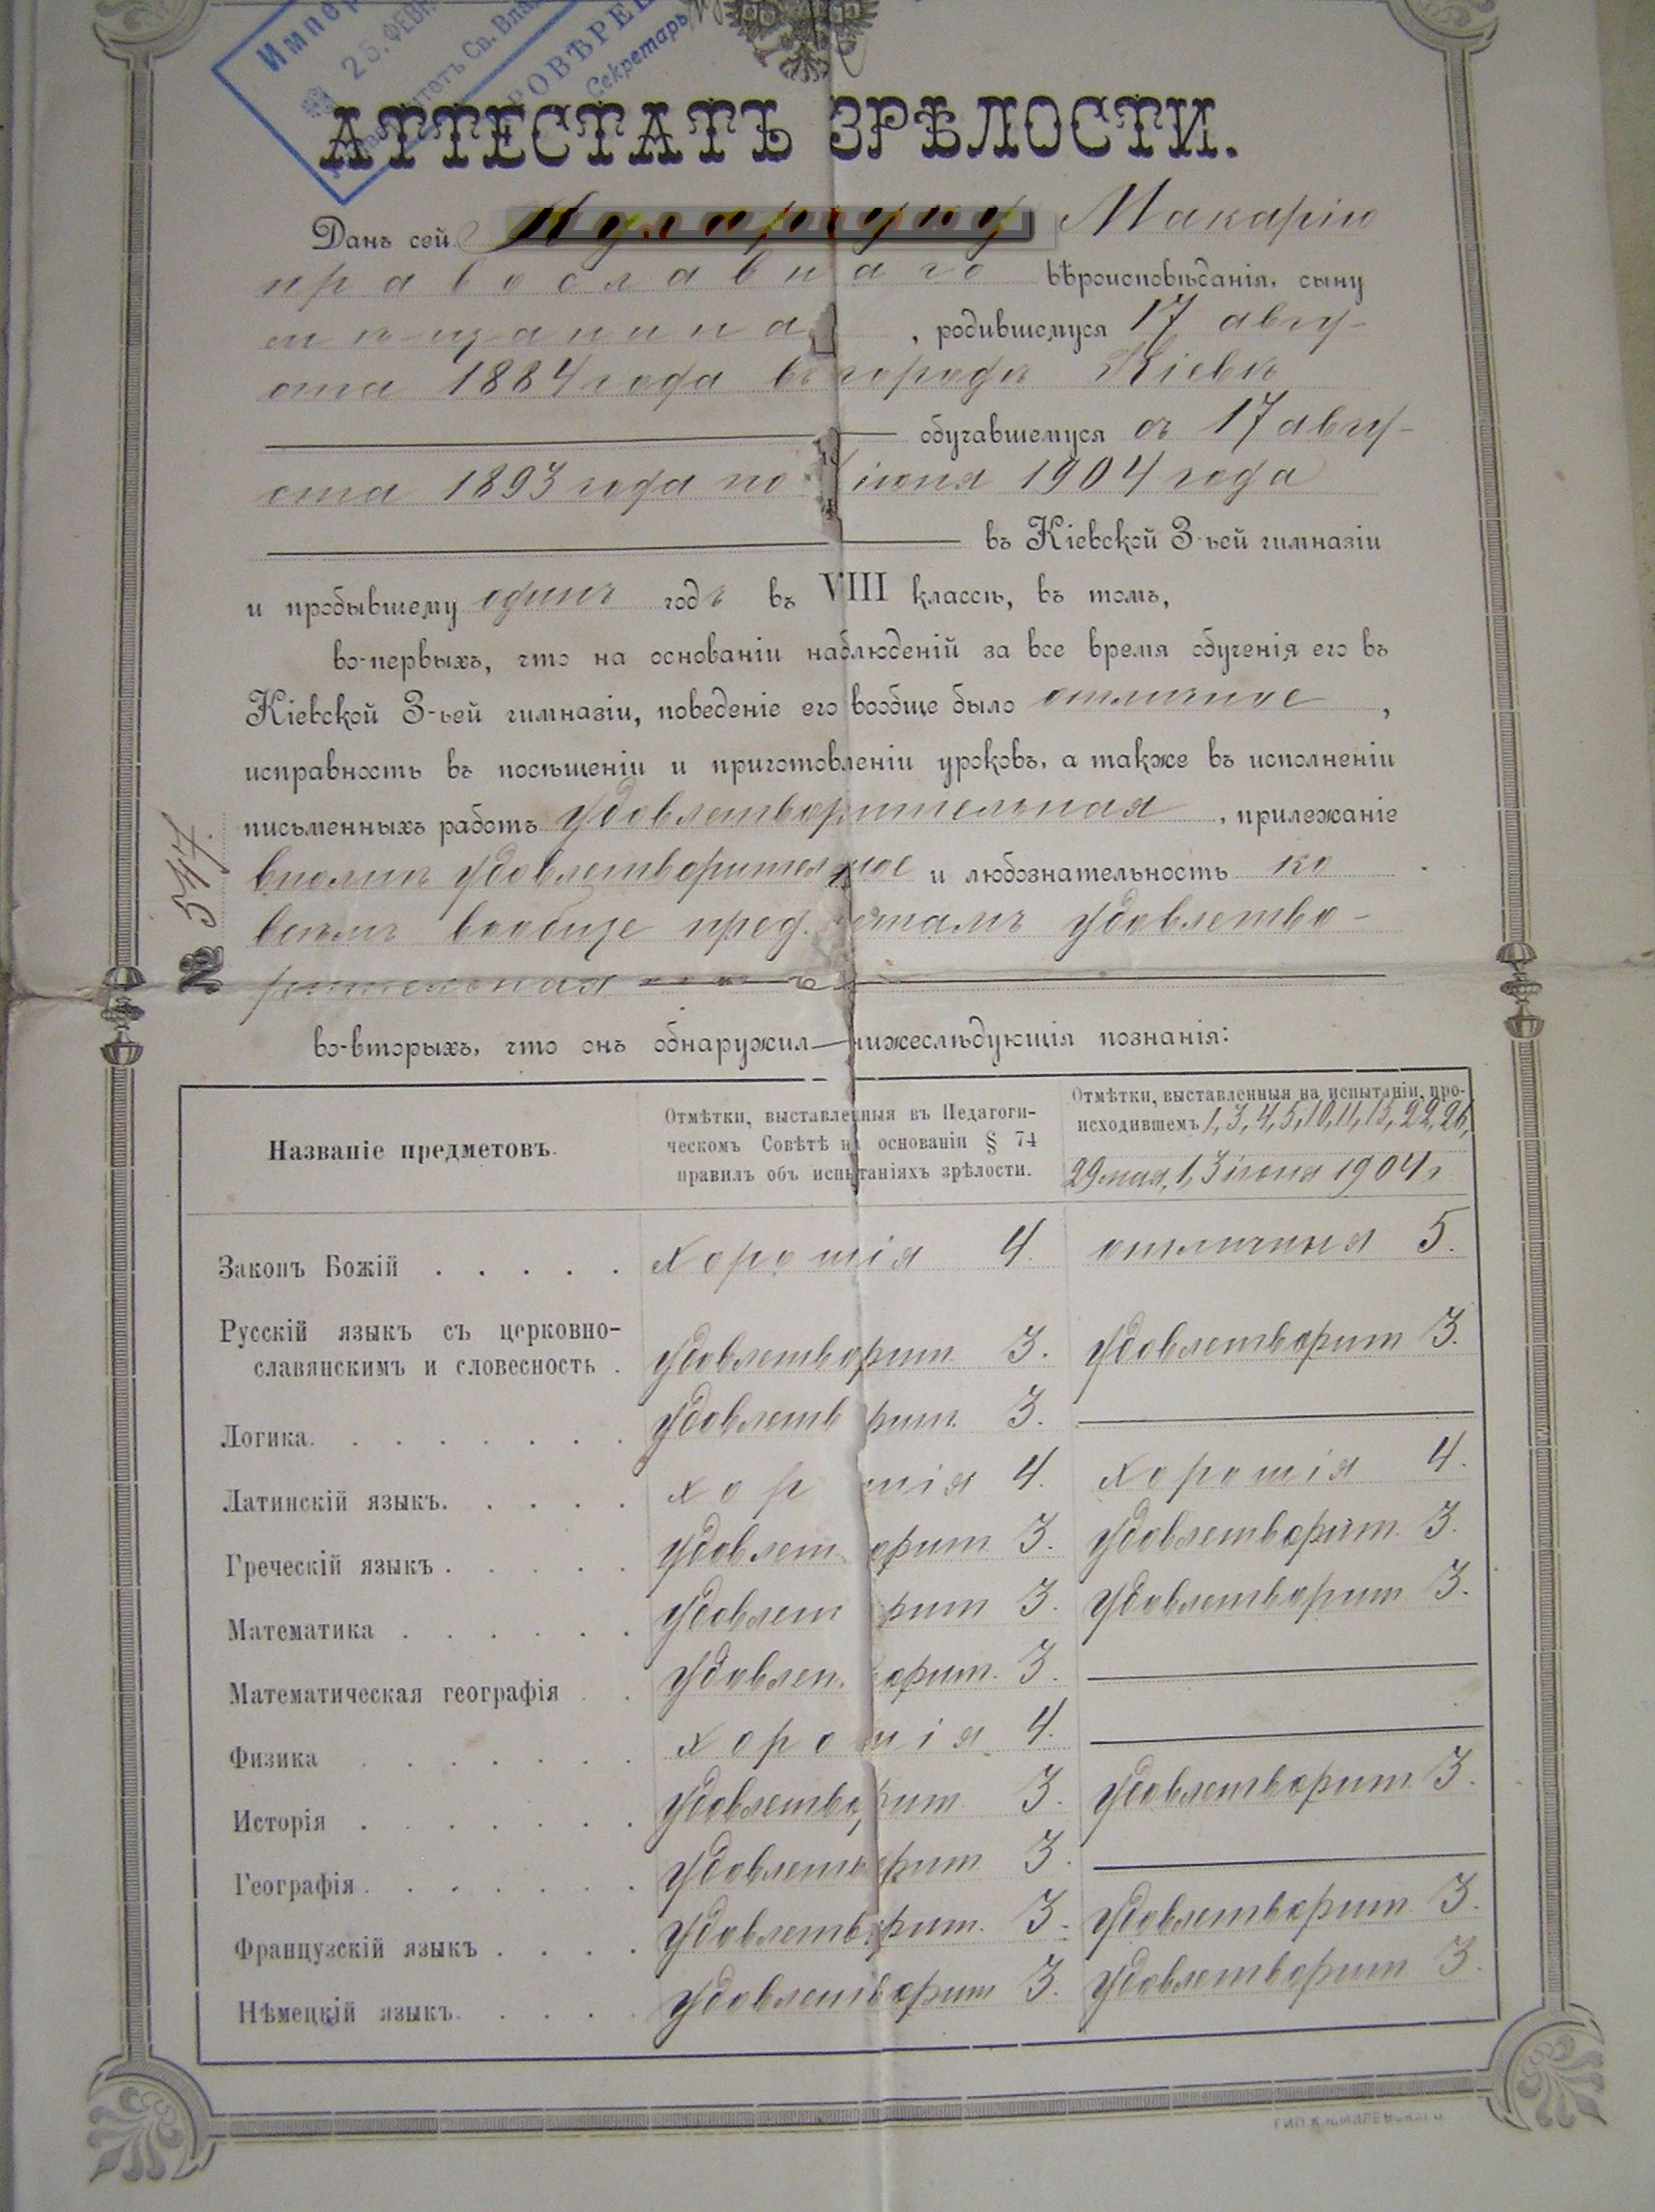 25. ФЕВ
Св. Вла
Секретарь
АТТЕСТАТЪ ЗРѢЛОСТИ.
Данъ сей Макарію
православнаго вѣроисповѣданія, сыну
мѣщанина, родившемуся 17 авгу-
ста 1884 года въ городѣ Кіевѣ
обучавшемуся съ 17 авгу-
ста 1893 года по іюня 1904 года
въ Кіевской 3-ьей гимназіи
и пробывшему одинъ годъ въ VIII классѣ, въ томъ,
во-первыхъ, что на основаніи наблюденій за все время обученія его въ
Кіевской 3-ьей гимназіи, поведеніе его вообще было отличное,
исправность въ посѣщеніи и приготовленіи уроковъ, а также въ исполненіи
письменныхъ работъ удовлетворительная, прилежаніе
вполнѣ удовлетворительное и любознательность ко
всѣмъ вообще предметамъ удовлетво-
рительная
№ 547.
во-вторыхъ, что онъ обнаружил нижеслѣдующія познанія:
Названіе предметовъ.
Отмѣтки, выставленныя въ Педагоги-
ческомъ Совѣтѣ на основаніи § 74
правилъ объ испытаніяхъ зрѣлости.
Отмѣтки, выставленныя на испытаніи, про-
исходившемъ 1, 3, 4, 5, 10, 11, 13, 22, 26,
29 мая, 1, 3 іюня 1904 г.
Законъ Божій . . . . . хорошія 4. отличныя 5.
Русскій языкъ съ церковно-
славянскимъ и словесность . удовлетворит. 3. удовлетворит 3.
Логика. . . . . . . . удовлетворит. 3.
Латинскій языкъ. . . . . хорошія 4. хорошія 4.
Греческій языкъ . . . . . удовлетворит 3. удовлетворит. 3.
Математика . . . . . . удовлетворит 3. удовлетворит 3.
Математическая географія . . удовлетворит. 3.
Физика . . . . . . . хорошія 4.
Исторія . . . . . . . удовлетворит 3. удовлетворит. 3.
Географія . . . . . . . удовлетворит 3.
Французскій языкъ . . . . удовлетворит. 3. удовлетворит. 3.
Нѣмецкій языкъ. . . . . удовлетворит 3. удовлетворит 3.